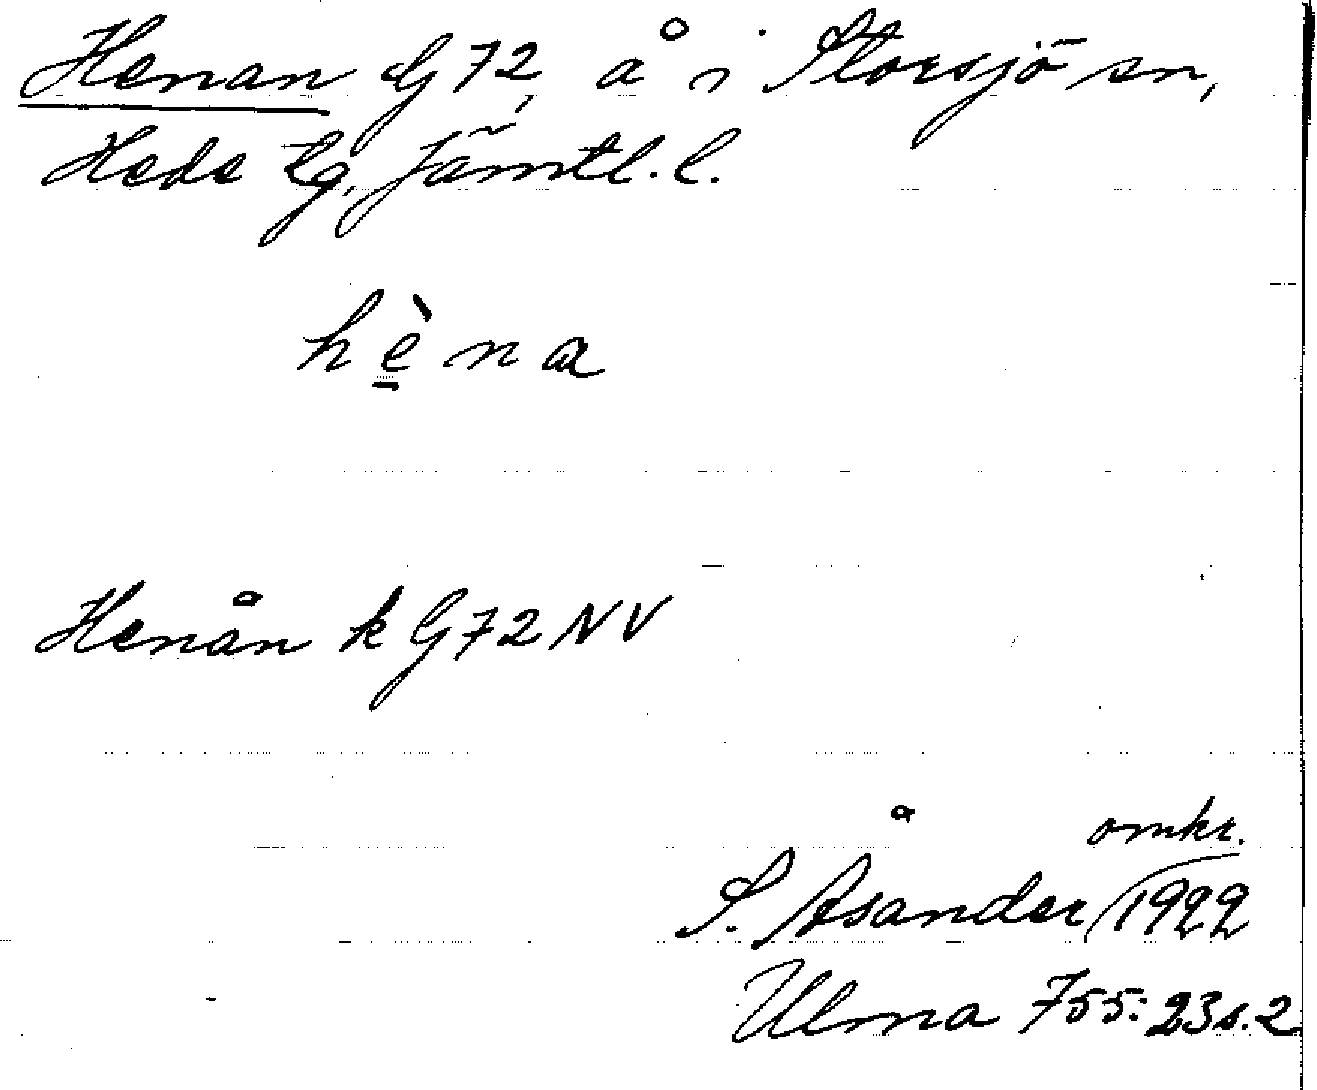 Henan G72, å i Storsjö sn,
Hede tg, Jämtl. l.
hèna
Henån k G72 NV
omkr.
S. Åsander/1922
Ulma 755: 23 s. 2